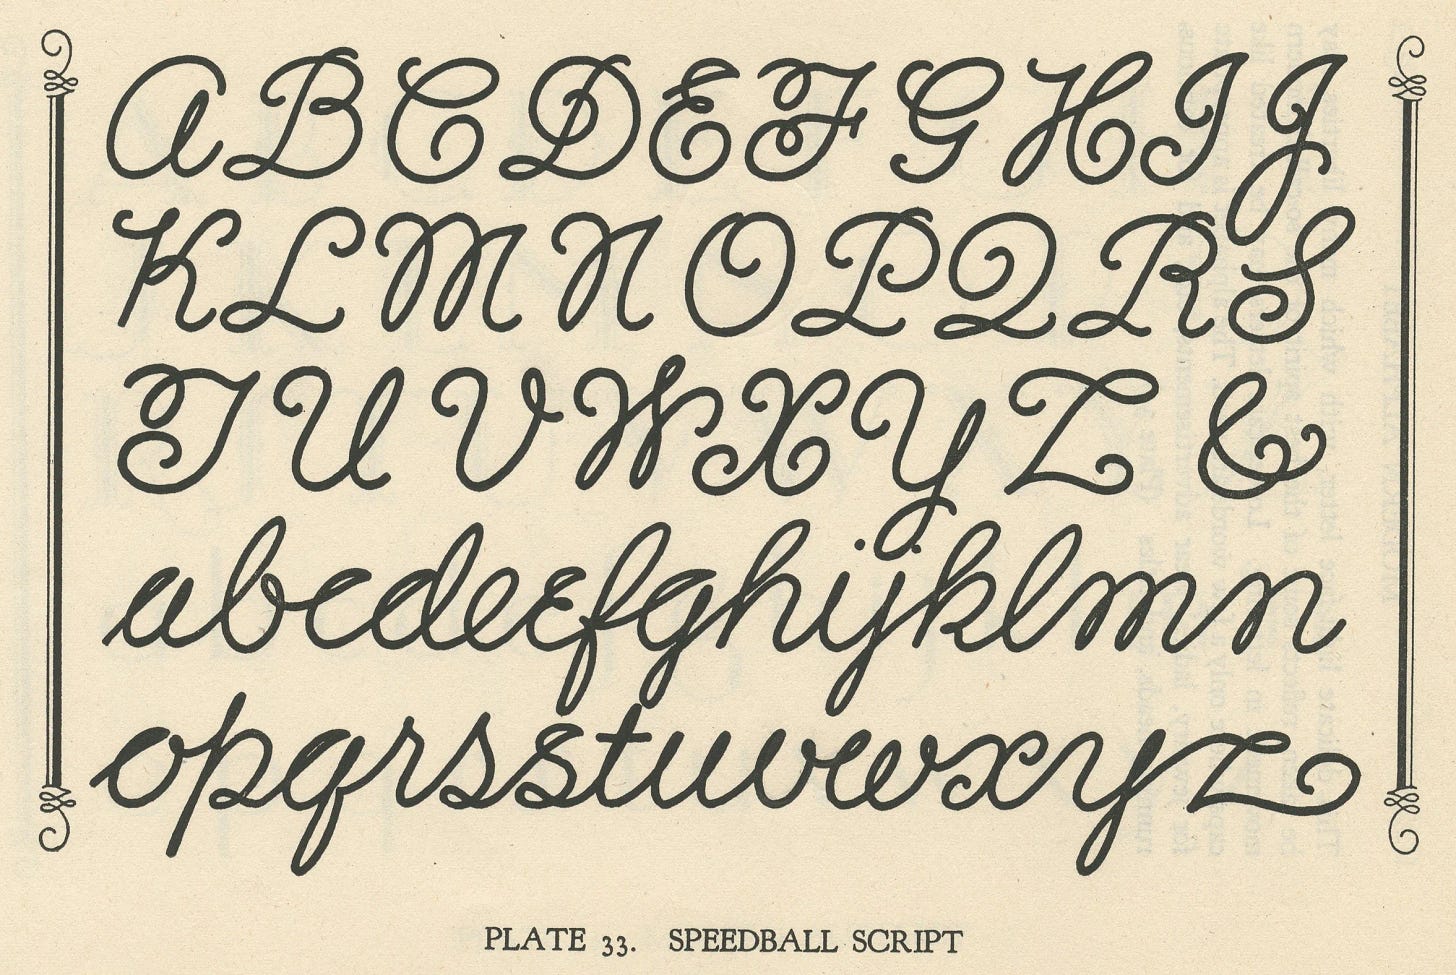 ABCDEFGHIJ
KLMNOPQRS
TUVWXYZ &
abcdeefghijklmn
opqrsstuvwxyz
PLATE 33. SPEEDBALL SCRIPT